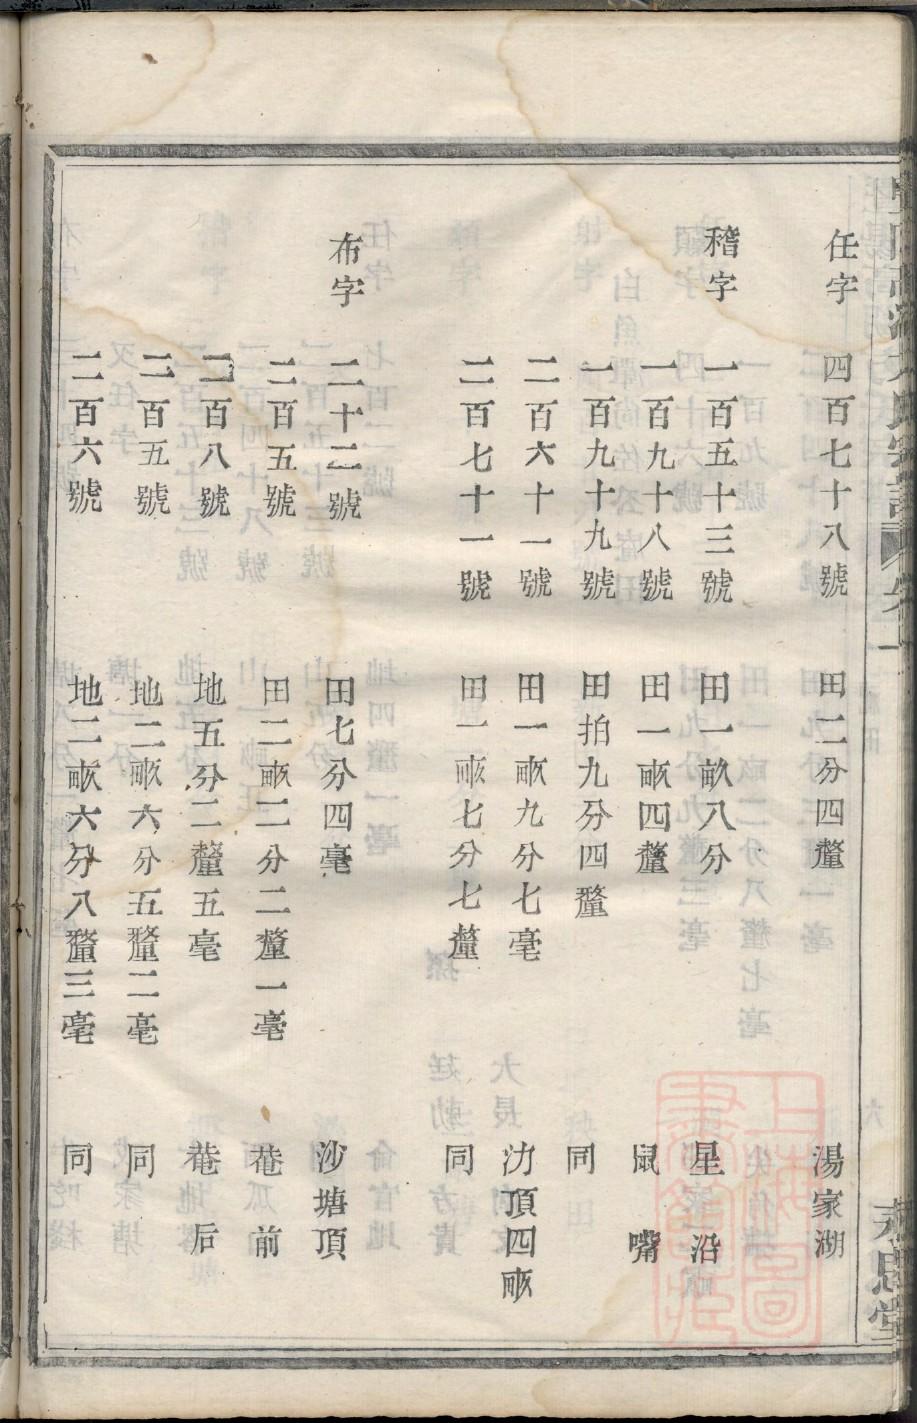 任字 四百七十八號 田二分四釐 湯家湖
稽字 一百五十三號 田一畝八分 星家沿
一百九十八號 田一畝四釐 鼠嘴
一百九十九號 田拍九分四釐 同
二百六十一號 田一畝九分七毫 沏頂四畝
二百七十一號 田一畝七分七釐 同
布字 二十二號 田七分四毫 沙塘頂
二百五號 田二畝二分二釐一毫 菴前
二百八號 地五分二釐五毫 菴后
二百五號 地二畝六分五釐二毫 同
二百六號 地二畝六分八釐三毫 同